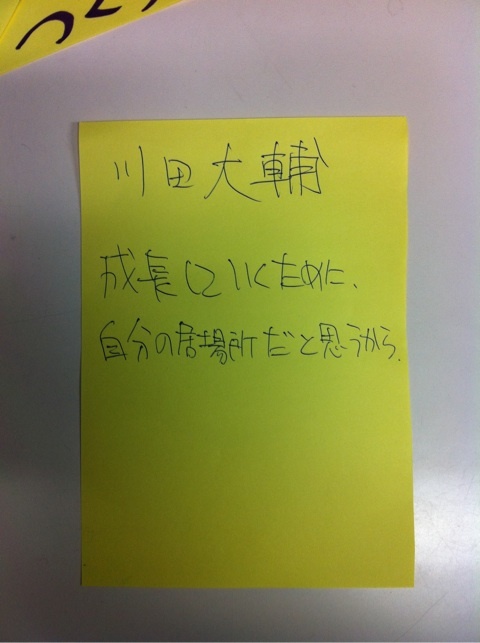 川田大輔
成長していくために、
自分の居場所だと思うから.